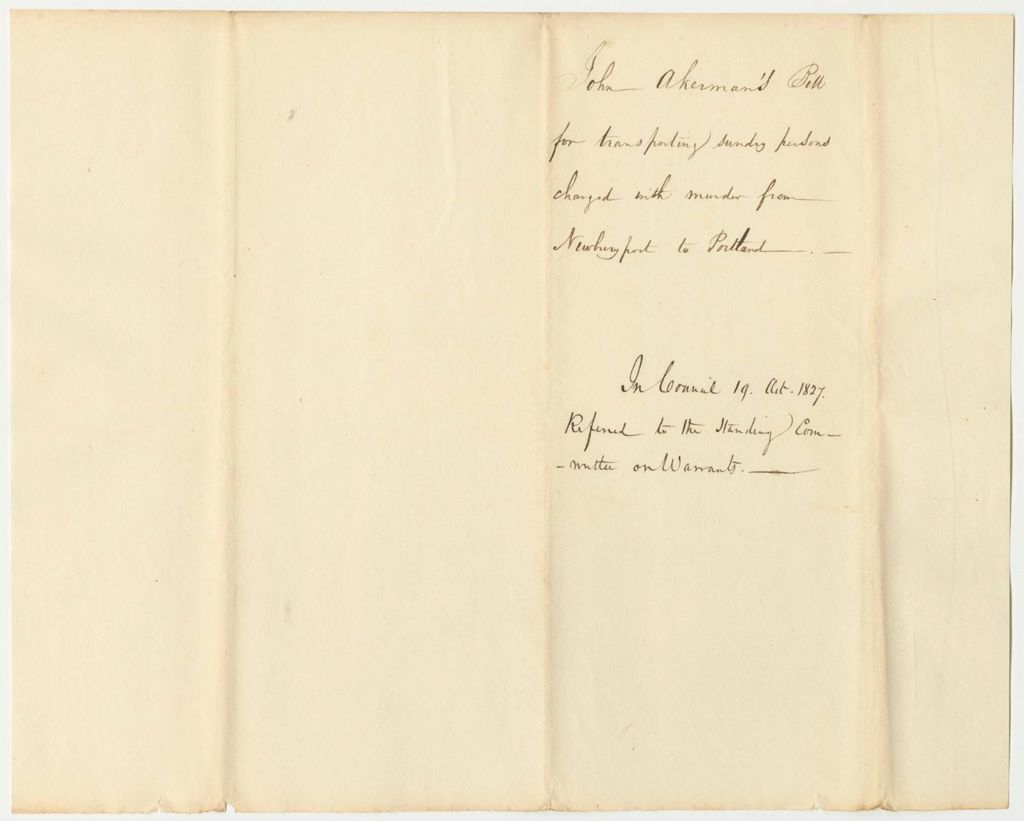 John Akerman's Bill
for transporting sundry persons
charged with murder from
Newburyport to Portland.
In Council 19. Oct. 1827.
Referred to the Standing Com-
-mittee on Warrants.